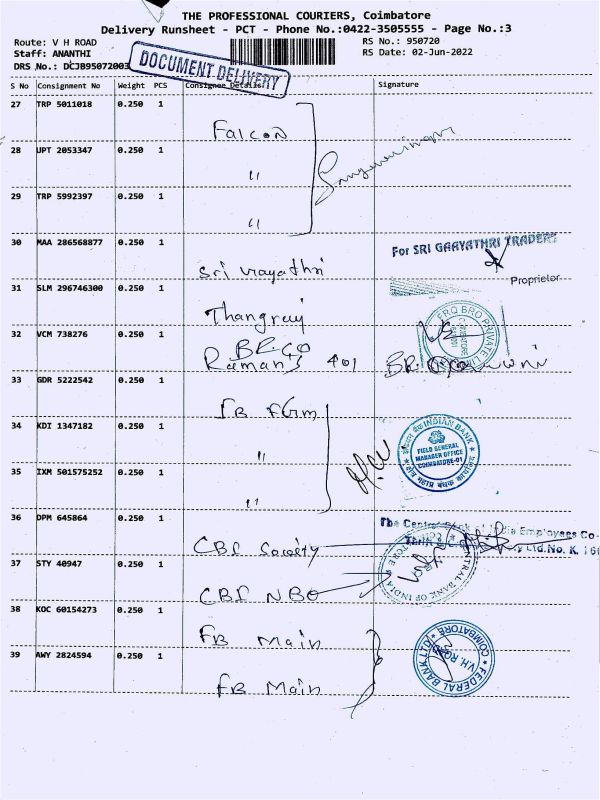 THE PROFESSIONAL COURIERS, Coimbatore
Delivery Runsheet - PCT - Phone No.:0422-3505555 - Page No.:3
Route: V H ROAD
RS No.: 950720
Staff: ANANTHI
RS Date: 02-Jun-2022
DRS No.: DCJB95072003
DOCUMENT DELIVERY
S No Consignment No Weight PCS Consignee Details Signature
27 TRP 5011018 0.250 1
Falcon
28 UPT 2053347 0.250 1
"
29 TRP 5992397 0.250 1
"
30 MAA 286568877 0.250 1
For SRI GAAYATHRI TRADERS
Sri
Proprietor
31 SLM 296746300 0.250 1
Thangraj
32 VCM 738276 0.250 1
401
33 GDR 5222542 0.250 1
34 KDI 1347182 0.250 1
"
INDIAN BANK
FIELD GENERAL
MANAGER OFFICE
COIMBATORE-01
35 IXM 501575252 0.250 1
"
36 DPM 645864 0.250 1
The Central Bank of India Employees Co-
Ltd.No. K.
CBI Society
37 STY 40947 0.250 1
CENTRAL BANK OF INDIA
CBI NBO
38 KOC 60154273 0.250 1
FB Main
COIMBATORE
VH ROAD
FEDERAL BANK LTD
39 AWY 2824594 0.250 1
FB Main